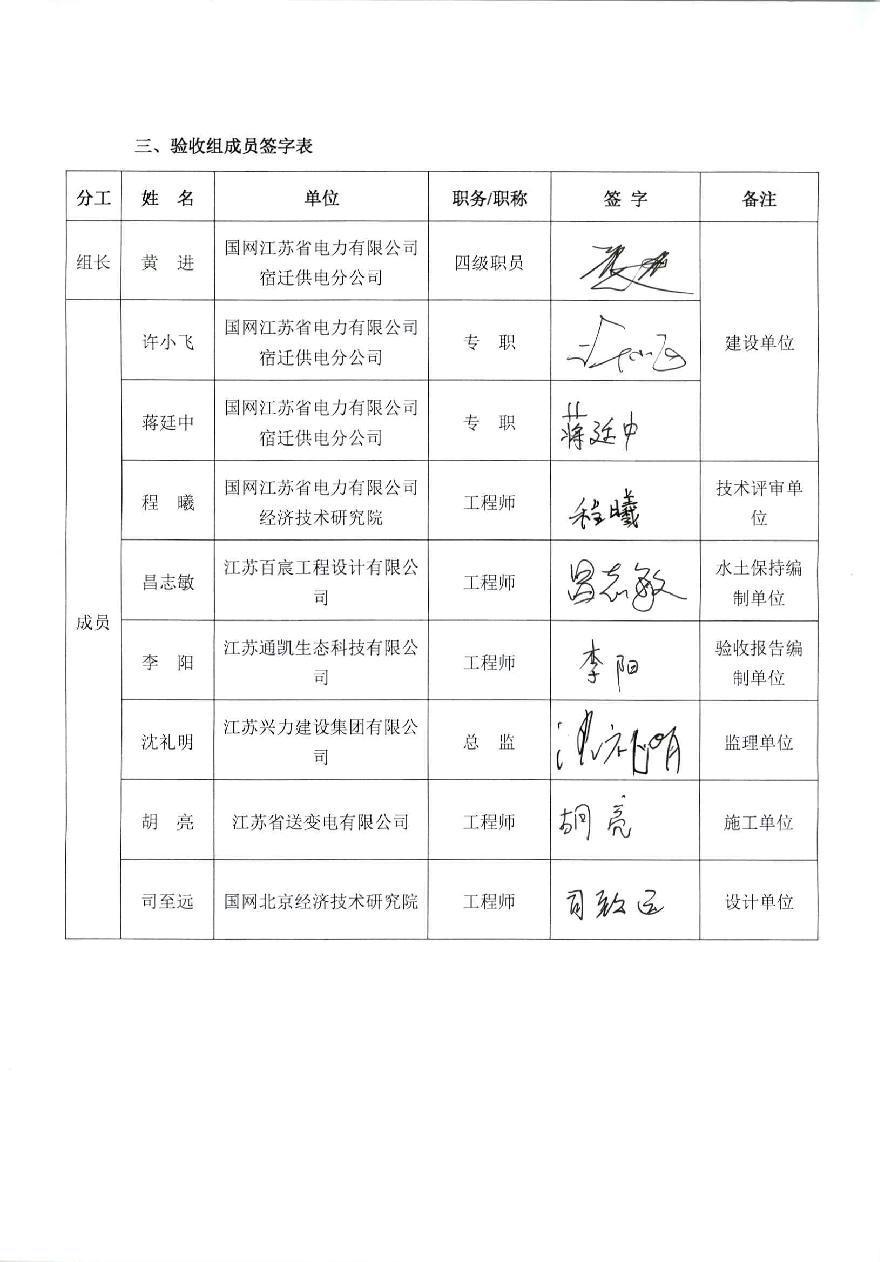 三、验收组成员签字表
分工 姓 名 单位 职务/职称 签 字 备注
组长 黄 进 国网江苏省电力有限公司
宿迁供电分公司 四级职员 建设单位
成员 许小飞 国网江苏省电力有限公司
宿迁供电分公司 专 职
蒋廷中 国网江苏省电力有限公司
宿迁供电分公司 专 职 蒋廷中
程 曦 国网江苏省电力有限公司
经济技术研究院 工程师 程曦 技术评审单
位
昌志敏 江苏百宸工程设计有限公
司 工程师 昌志敏 水土保持编
制单位
李 阳 江苏通凯生态科技有限公
司 工程师 李阳 验收报告编
制单位
沈礼明 江苏兴力建设集团有限公
司 总 监 沈礼明 监理单位
胡 亮 江苏省送变电有限公司 工程师 胡亮 施工单位
司至远 国网北京经济技术研究院 工程师 司致远 设计单位